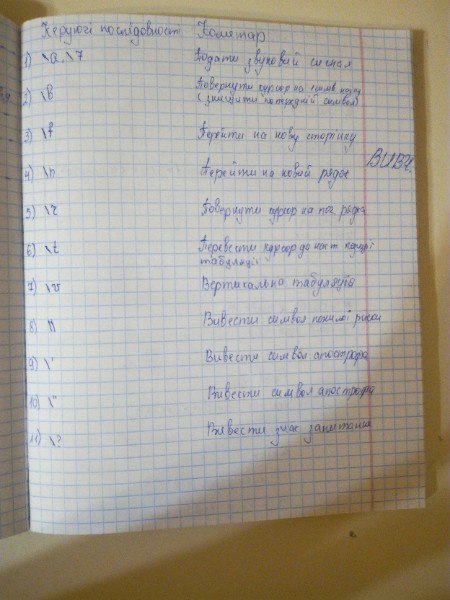 Керуючі послідовності Коментар
1) \a, \7 Подати звуковий сигнал
2) \b Повернути курсор на 1 симв назад
(знищити попередній символ)
3) \f Перейти на нову сторінку
ВИВЧ.
4) \n Перейти на новий рядок
5) \r Повернути курсор на поч рядка
6) \t Перевести курсор до наст позиції
табуляції
7) \v Вертикальна табуляція
8) \\ Вивести символ похилої риски
9) \' Вивести символ апострофа
10) \" Вивести символ апострофа
11) \? Вивести знак запитання